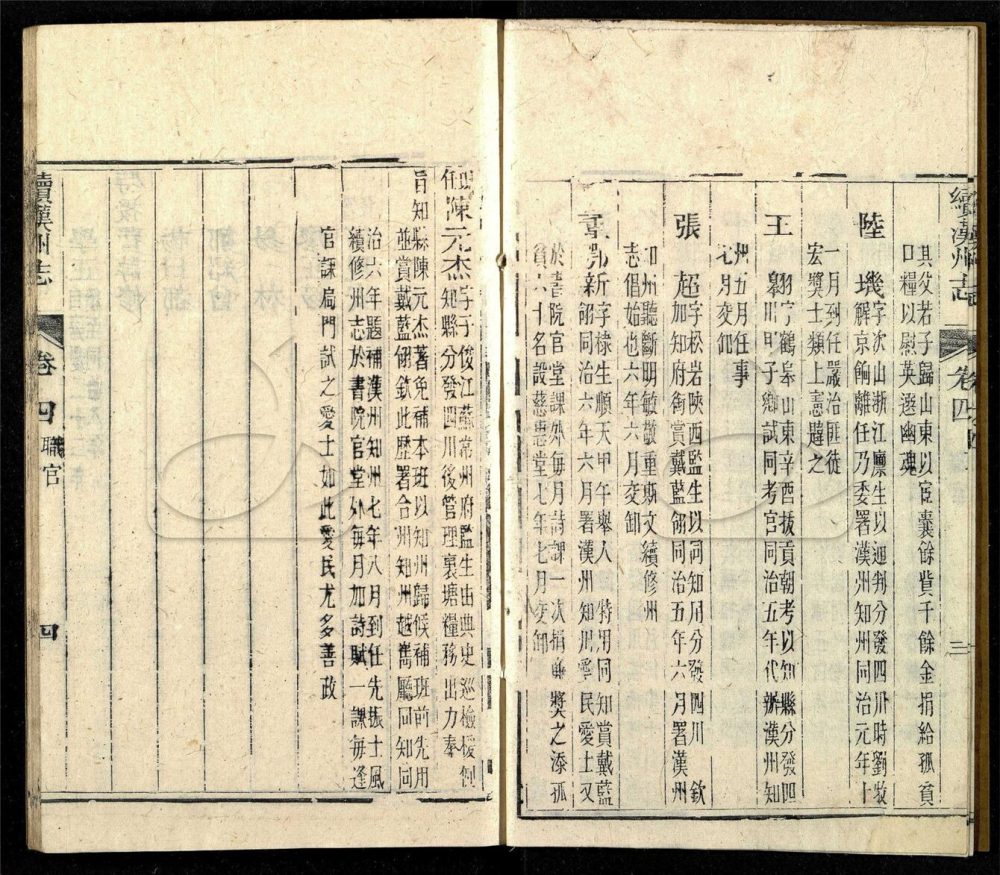 續漢州志 卷四 三
其父若子歸山東以宦囊餘貲千餘金捐給孤貧
口糧以慰英遊幽魂
陸 璣字次山浙江廩生以通判分發四川時劉牧
解京餉離任乃委署漢州知州同治元年十
一月列任嚴治匪徒
宏獎士類上憲韙之
王 翱字鶴皋山東辛酉拔貢朝考以知縣分發四
川甲子鄉試同考官同治五年代辦漢州知
州五月任事
七月交卸
張 超字松岩陝西監生以同知用分發四川 欽
加知府銜賞戴藍翎同治五年六月署漢州
知州聽斷明敏敬重斯文續修州
志倡始也六年六月交卸
新字棣生順天甲午舉人 特用同知賞戴藍
翎同治六年六月署漢州知州愛民愛士又
於書院官堂課外每月詩課一次捐廉獎之添孤
貧六十名設慈惠堂七年七月交卸
陳元杰字子俊江蘇常州府監生由典史巡檢援例
任 知縣分發四川後管理裏塘糧務出力奉
旨知縣陳元杰著免補本班以知州歸候補班前先用
並賞戴藍翎欽此歷署合州知州越嶲廳同知同
治六年題補漢州知州七年八月到任先振士風
續修州志於書院官堂外每月加詩賦一課每逢
官課扃門試之愛士如此愛民尤多善政
續漢州志 卷四 職官 四